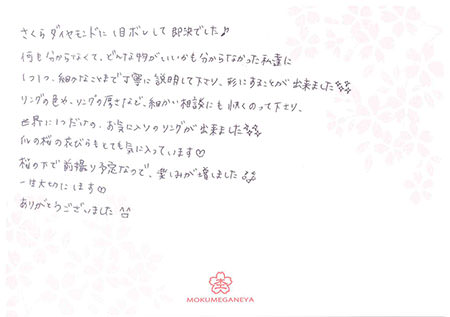 さくらダイヤモンドに1目ボレして即決でした♪
何も分からなくて、どんな物がいいかも分からなかった私達に
1つ1つ、細かなことまで丁寧に説明して下さり、形にすることが出来ました
リングの色や、リングの厚さなど、細かい相談にも快くのって下さり、
世界に1つだけの、お気に入りのリングが出来ました
桜の花びらもとても気に入っています♡
桜の下で前撮り予定なので、楽しみが増しました
一生大切にします♡
ありがとうございました^^
MOKUMEGANEYA